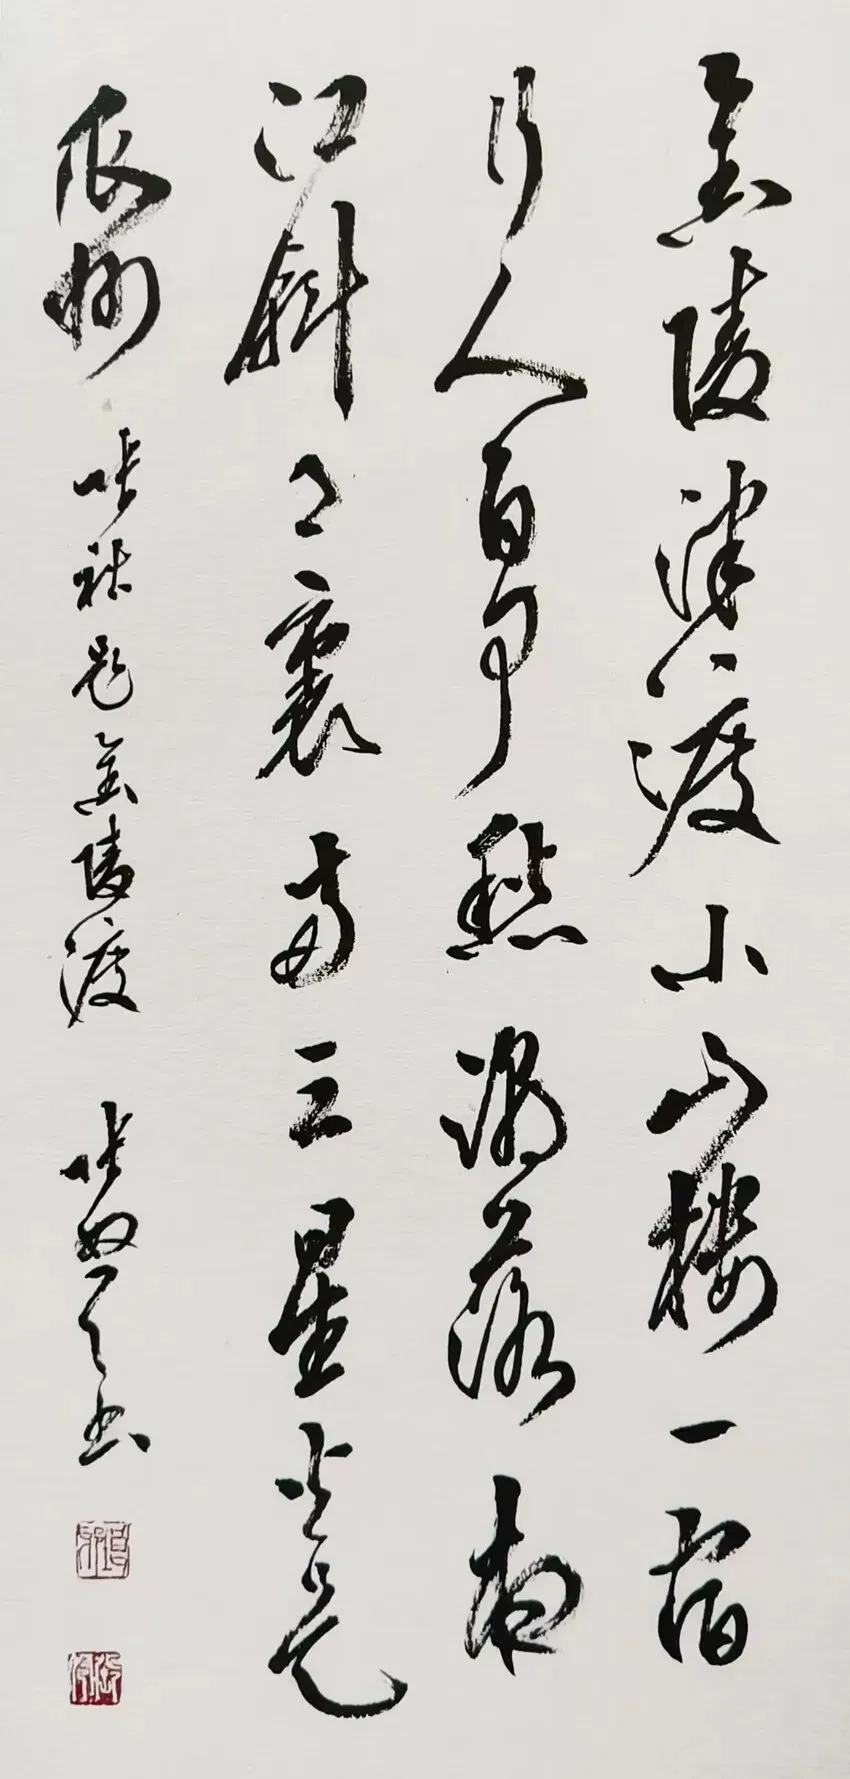 金陵津渡小山楼一宿
行人自可愁潮落夜
江斜月裏两三星火是
瓜州 张祜题金陵渡 张 书